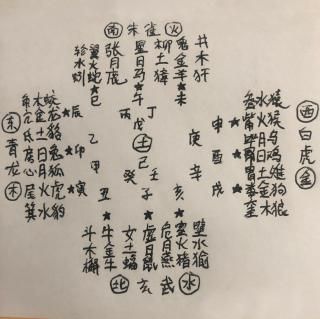 南 朱雀 火
井木犴
鬼金羊
柳土獐
星日马
张月虎
翼火蛇
轸水蚓
巳 午 未
东 青龙 木
角木蛟
亢金龙
氐土豹
房日兔
心月狐
尾火虎
箕水豹
辰 卯 寅
西 白虎 金
水猿
火猴
月乌
日鸡
土雉
金狗
木狼
申 酉 戌
丙 丁
甲 乙
戊 土 己
庚 辛
壬 癸
丑 子 亥
斗木獬
牛金牛
女土蝠
虚日鼠
危月燕
室火猪
壁水貐
北 玄武 水